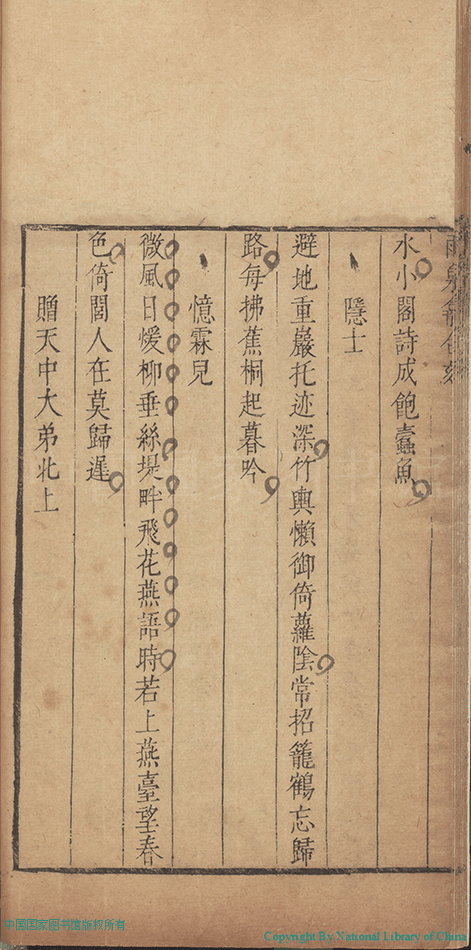 水小閣詩成飽蠹魚
隱士
避地重巖托迹深竹輿懶御倚蘿陰常招籠鶴忘歸
路每拂蕉桐起暮吟
憶霖兒
微風日煖柳垂絲堤畔飛花燕語時若上燕臺望春
色倚閣人在莫歸遲
贈天中大弟北上
中国国家图书馆版权所有
Copyright By National Library of China